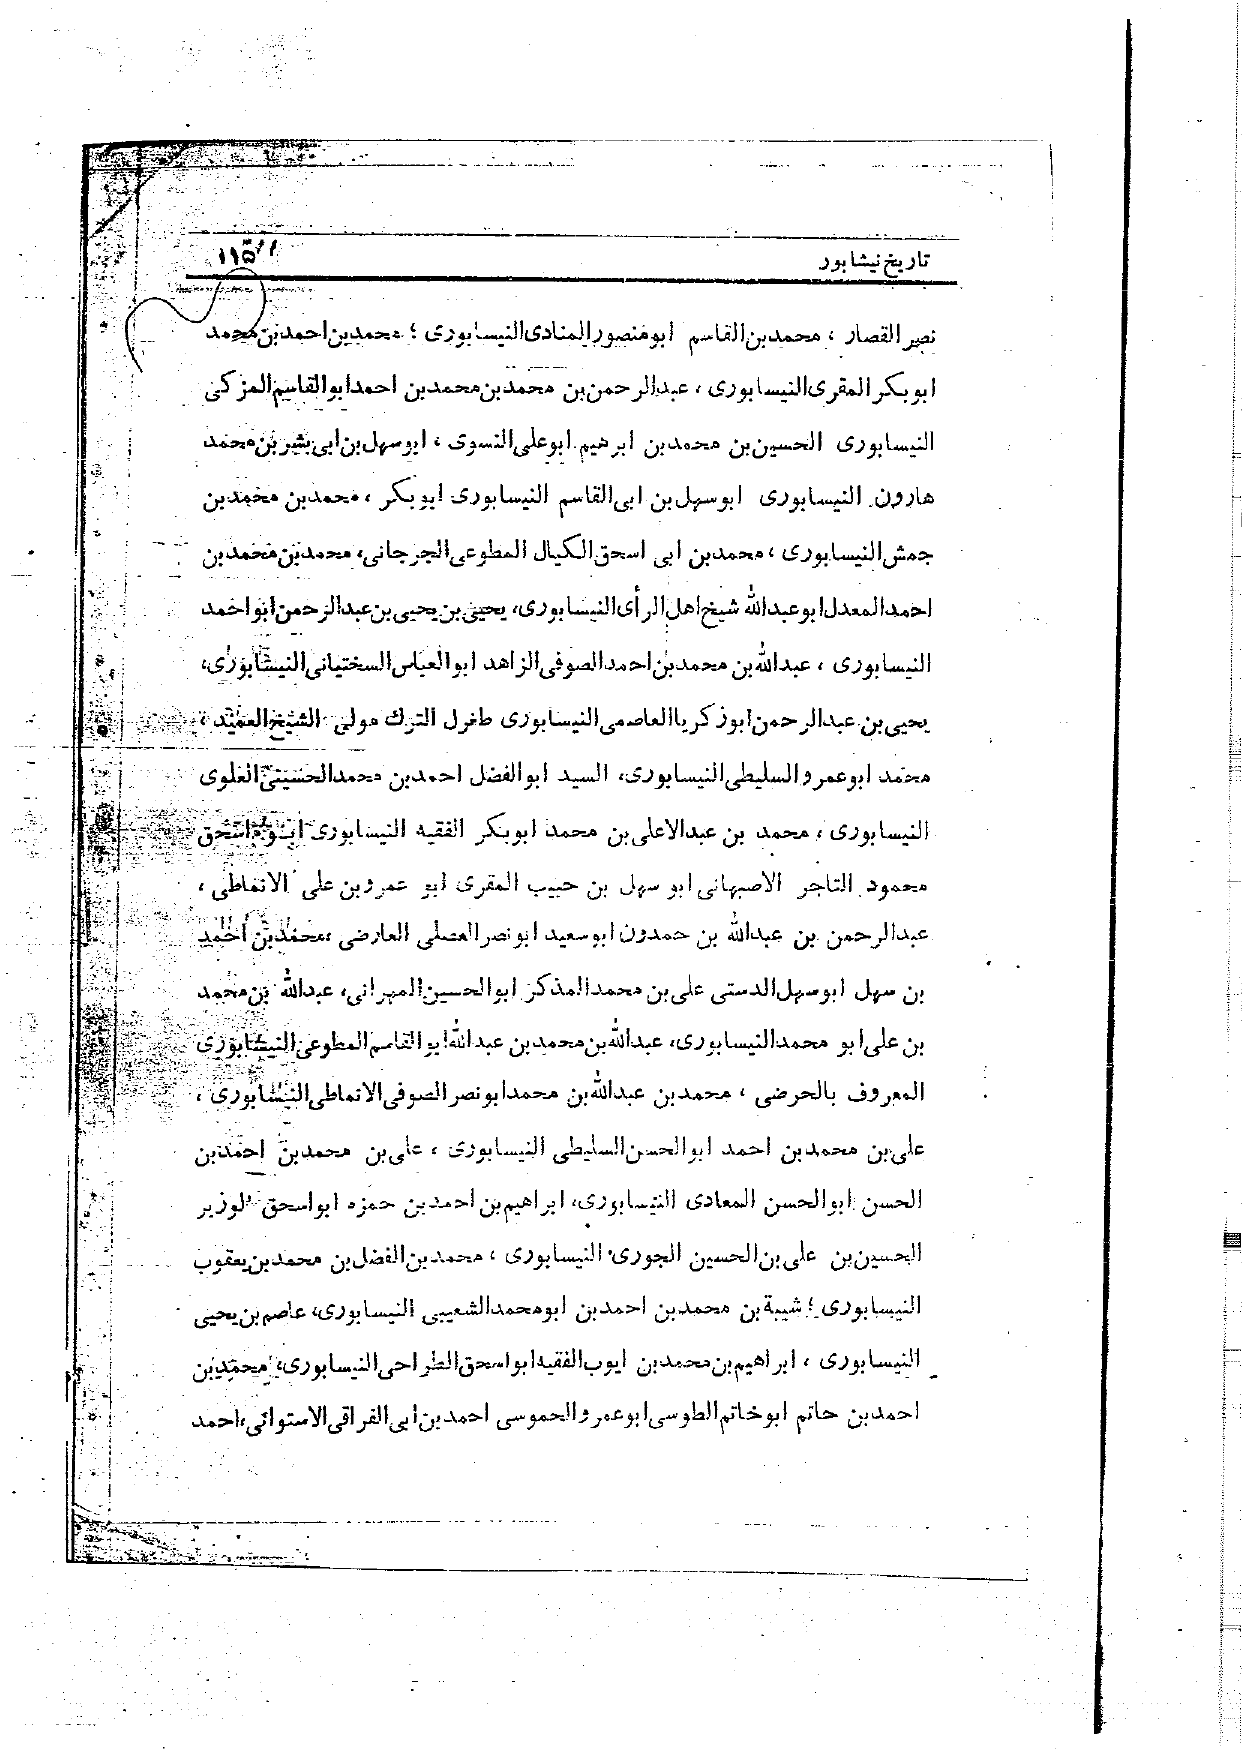 تاریخ نیشابور
۱۱۵
نصر القصار ، محمدبن القاسم ابومنصور المنادی النیسابوری ؛ محمدبن احمدبن محمد
ابوبکر المقری النیسابوری ، عبدالرحمن بن محمدبن محمدبن احمد ابوالقاسم المزکی
النیسابوری الحسین بن محمدبن ابرهیم ابوعلی النسوی ، ابوسهل بن ابی بشیر بن محمد
هارون النیسابوری ابوسهل بن ابی القاسم النیسابوری ابوبکر ، محمدبن محمدبن
جمش النیسابوری ، محمدبن ابی اسحق الکیال المطوعی الجرجانی، محمدبن محمدبن
احمد المعدل ابوعبدالله شیخ اهل الرأی النیسابوری، یحیی بن یحیی بن عبدالرحمن ابواحمد
النیسابوری ، عبدالله بن محمدبن احمد الصوفی الزاهد ابوالعباس السختیانی النیسابوری،
یحیی بن عبدالرحمن ابوزکریا العاصمی النیسابوری طغرل الترك مولی الشیخ العمید ،
محمد ابوعمرو السلیطی النیسابوری، السید ابوالفضل احمدبن محمد الحسینی العلوی
النیسابوری ، محمد بن عبدالاعلی بن محمد ابوبکر الفقیه النیسابوری
محمود التاجر الاصبهانی ابو سهل بن حبیب المقری ابو عمرو بن علی الانماطی ،
عبدالرحمن بن عبدالله بن حمدون ابوسعید ابونصر العارضی ،محمدبن احمد
بن سهل ابوسهل الدستی علی بن محمد المذکر ابوالحسین المهرانی، عبدالله بن محمد
بن علی ابو محمد النیسابوری، عبدالله بن محمدبن عبدالله ابوالقاسم المطوعی النیسابوری
المعروف بالحرضی ، محمدبن عبدالله بن محمد ابونصر الصوفی الانماطی النیسابوری ،
علی بن محمدبن احمد ابوالحسن السلیطی النیسابوری ، علی بن محمدبن احمدبن
الحسن ابوالحسن المعادی النیسابوری، ابراهیم بن احمدبن حمزه ابواسحق الوزیر
الحسین بن علی بن الحسین الجوری النیسابوری ، محمدبن الفضل بن محمدبن یعقوب
النیسابوری ؛ شیبة بن محمدبن احمدبن ابومحمد الشعیبی النیسابوری، عاصم بن یحیی
النیسابوری ، ابراهیم بن محمدبن ایوب الفقیه ابواسحق الطراحی النیسابوری، محمدبن
احمدبن حاتم ابوحاتم الطوسی ابوعمرو الحموسی احمدبن ابی الفراقی الاستوائی، احمد